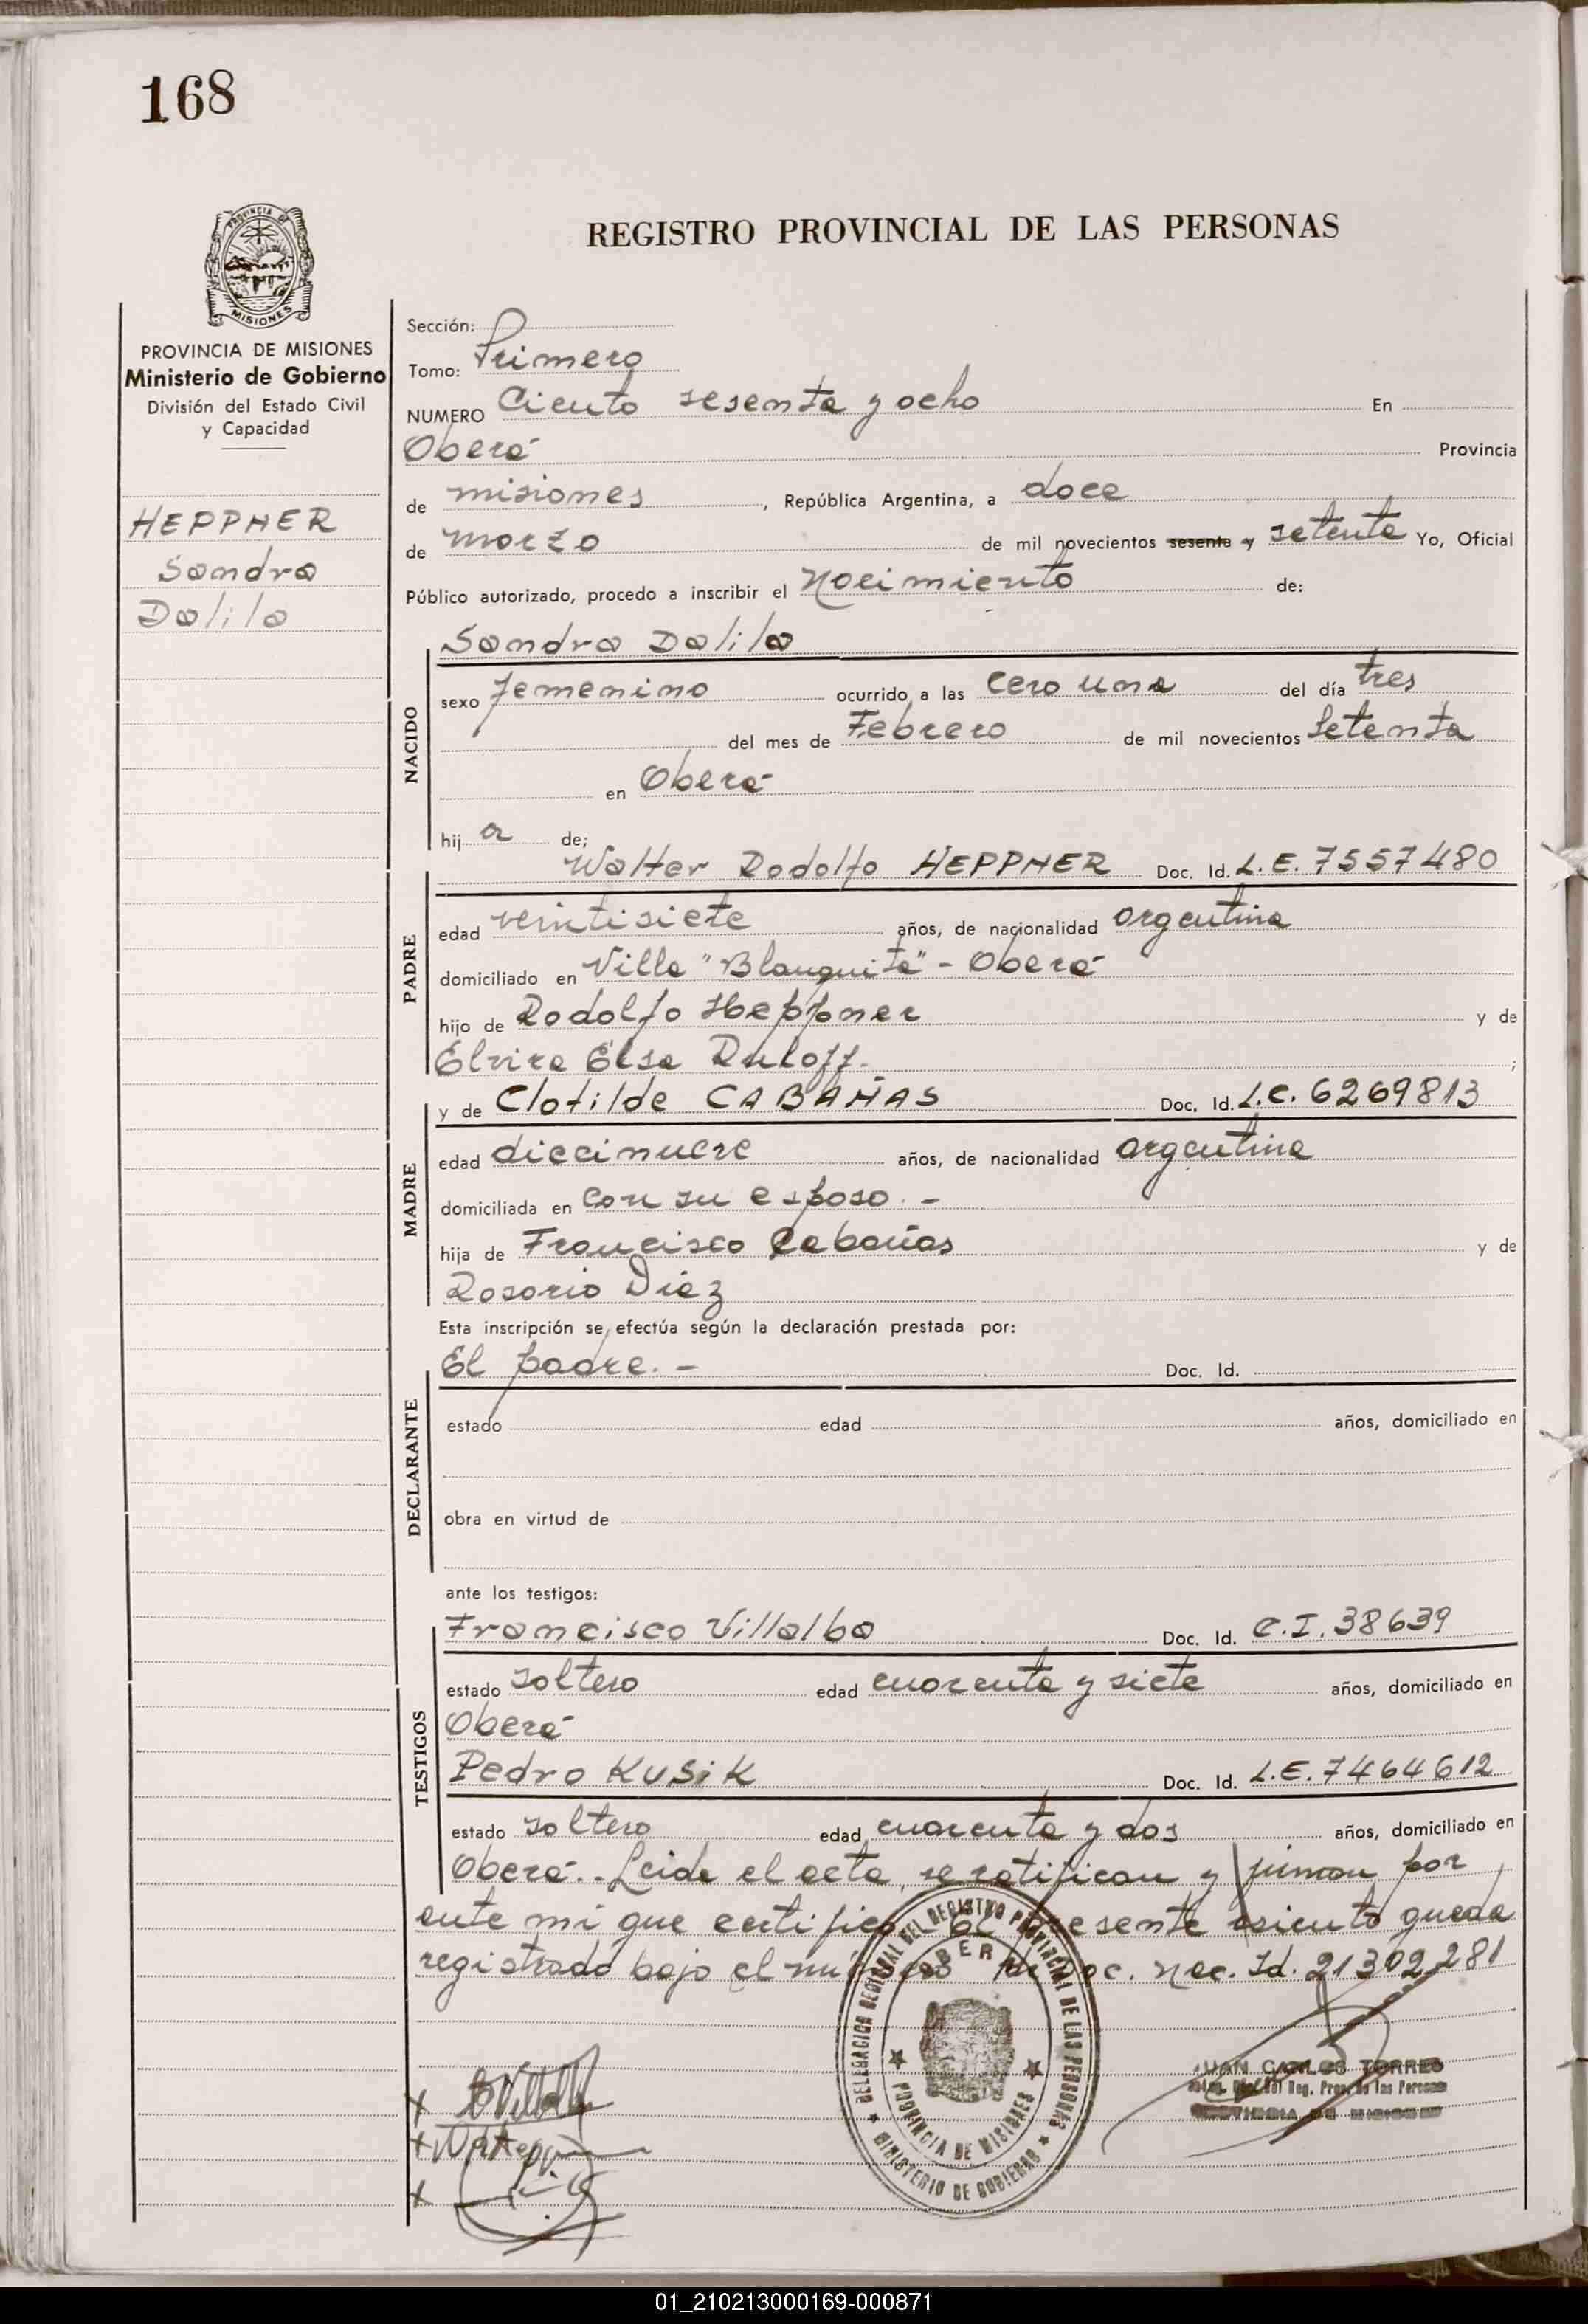 168
PROVINCIA DE
MISIONES
REGISTRO PROVINCIAL DE LAS PERSONAS
PROVINCIA DE MISIONES
Ministerio de Gobierno
División del Estado Civil
y Capacidad
HEPPNER
Sandra
Dalila
Sección:
Tomo: Primero
NUMERO Ciento sesenta y ocho En
Oberá Provincia
de misiones, República Argentina, a doce
de marzo de mil novecientos sesenta y setenta Yo, Oficial
Público autorizado, procedo a inscribir el Nacimiento de:
NACIDO
Sandra Dalila
sexo femenino ocurrido a las cero una del día tres
del mes de Febrero de mil novecientos Setenta
en Oberá
hij a de;
Walter Rodolfo HEPPNER Doc. Id. L.E. 7557480
PADRE
edad veintisiete años, de nacionalidad argentina
domiciliado en Villa "Blanquita" - Oberá
hijo de Rodolfo Heppner y de
Elvira Elsa Ruloff. ;
MADRE
y de Clotilde CABAÑAS Doc. Id. L.C. 6269813
edad diecinueve años, de nacionalidad argentina
domiciliada en con su esposo. -
hija de Francisco Cabañas y de
Rosario Diez
Esta inscripción se efectúa según la declaración prestada por:
DECLARANTE
El padre. - Doc. Id.
estado edad años, domiciliado en
obra en virtud de
ante los testigos:
TESTIGOS
Francisco Villalba Doc. Id. C.I. 38639
estado soltero edad cuarenta y siete años, domiciliado en
Oberá
Pedro KUSIK Doc. Id. L.E. 7464612
estado soltero edad cuarenta y dos años, domiciliado en
Oberá.- Leida el acta, se ratifican y firman por
ante mi que certifico. El presente asiento queda
registrado bajo el número de Doc. Nac. Id. 21302281
DELEGACION REGIONAL DEL REGISTRO PROVINCIAL DE LAS PERSONAS
OBERA
PROVINCIA DE MISIONES
MINISTERIO DE GOBIERNO
JUAN CARLOS TORRES
Reg. Prov. de las Personas
PROVINCIA DE MISIONES
01_210213000169-000871